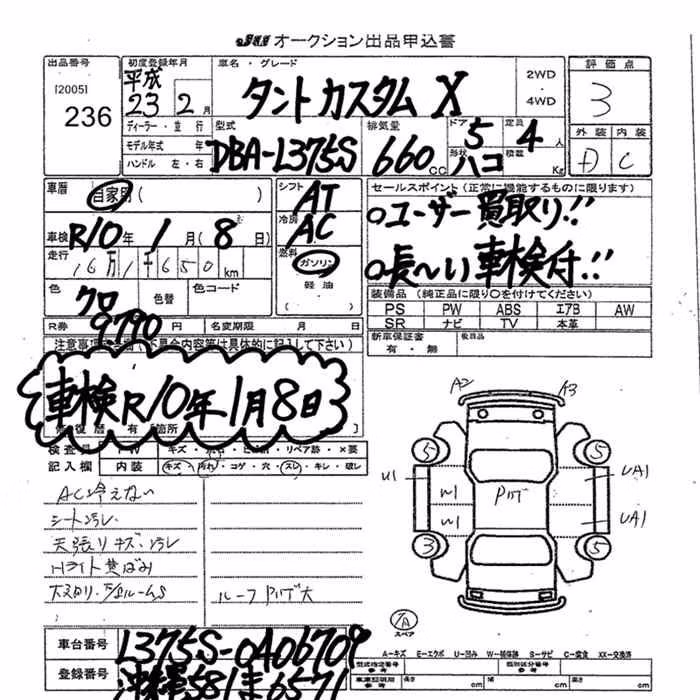 JU オークション出品申込書
出品番号 初度登録年月 車名・グレード 2WD 評価点
[2005] 平成 ・
236 23 2月 タント カスタム X 4WD 3
ディーラー・並行 型式 排気量 ドア 5 定員 4人 外装 内装
モデル年式 年 DBA-L375S 660cc 形状 ハコ 積載 Kg D C
ハンドル 左・右
車歴 自家用( ) シフト AT セールスポイント(正常に機能するものに限ります)
車検 R10年 1月(8日) 冷房 AC ○ユーザー買取り!!
走行 16万1千650km 燃料 ガソリン ○長〜い車検付!!
色 クロ 色替 色コード 軽油
装備品(純正品に限り○を付けてください)
PS PW ABS エアB AW
SR ナビ TV 本革
R券 9790円 名変期限 月 日 新車保証書 後日品
有・無
車検R10年1月8日
修復歴 有[箇所 ]
検査員
記入欄 内装 キズ・汚れ・コゲ・穴・スレ・キレ・破レ
A2 A3
5 5
U1 W1 UA1
W1 UA1
3 5
AC冷えない
シート汚レ
天張りキズ・汚レ
Hライト黄ばみ
ルーフ 大
スペア
車台番号 L375S-0406709
登録番号 沖縄581ま6571
A−キズ E−エクボ U−凹み W−補修跡 S−サビ C−腐食 XX−交換済
型式指定番号 参考 類別区分番号 参考
長さ cm 幅 cm 高さ cm